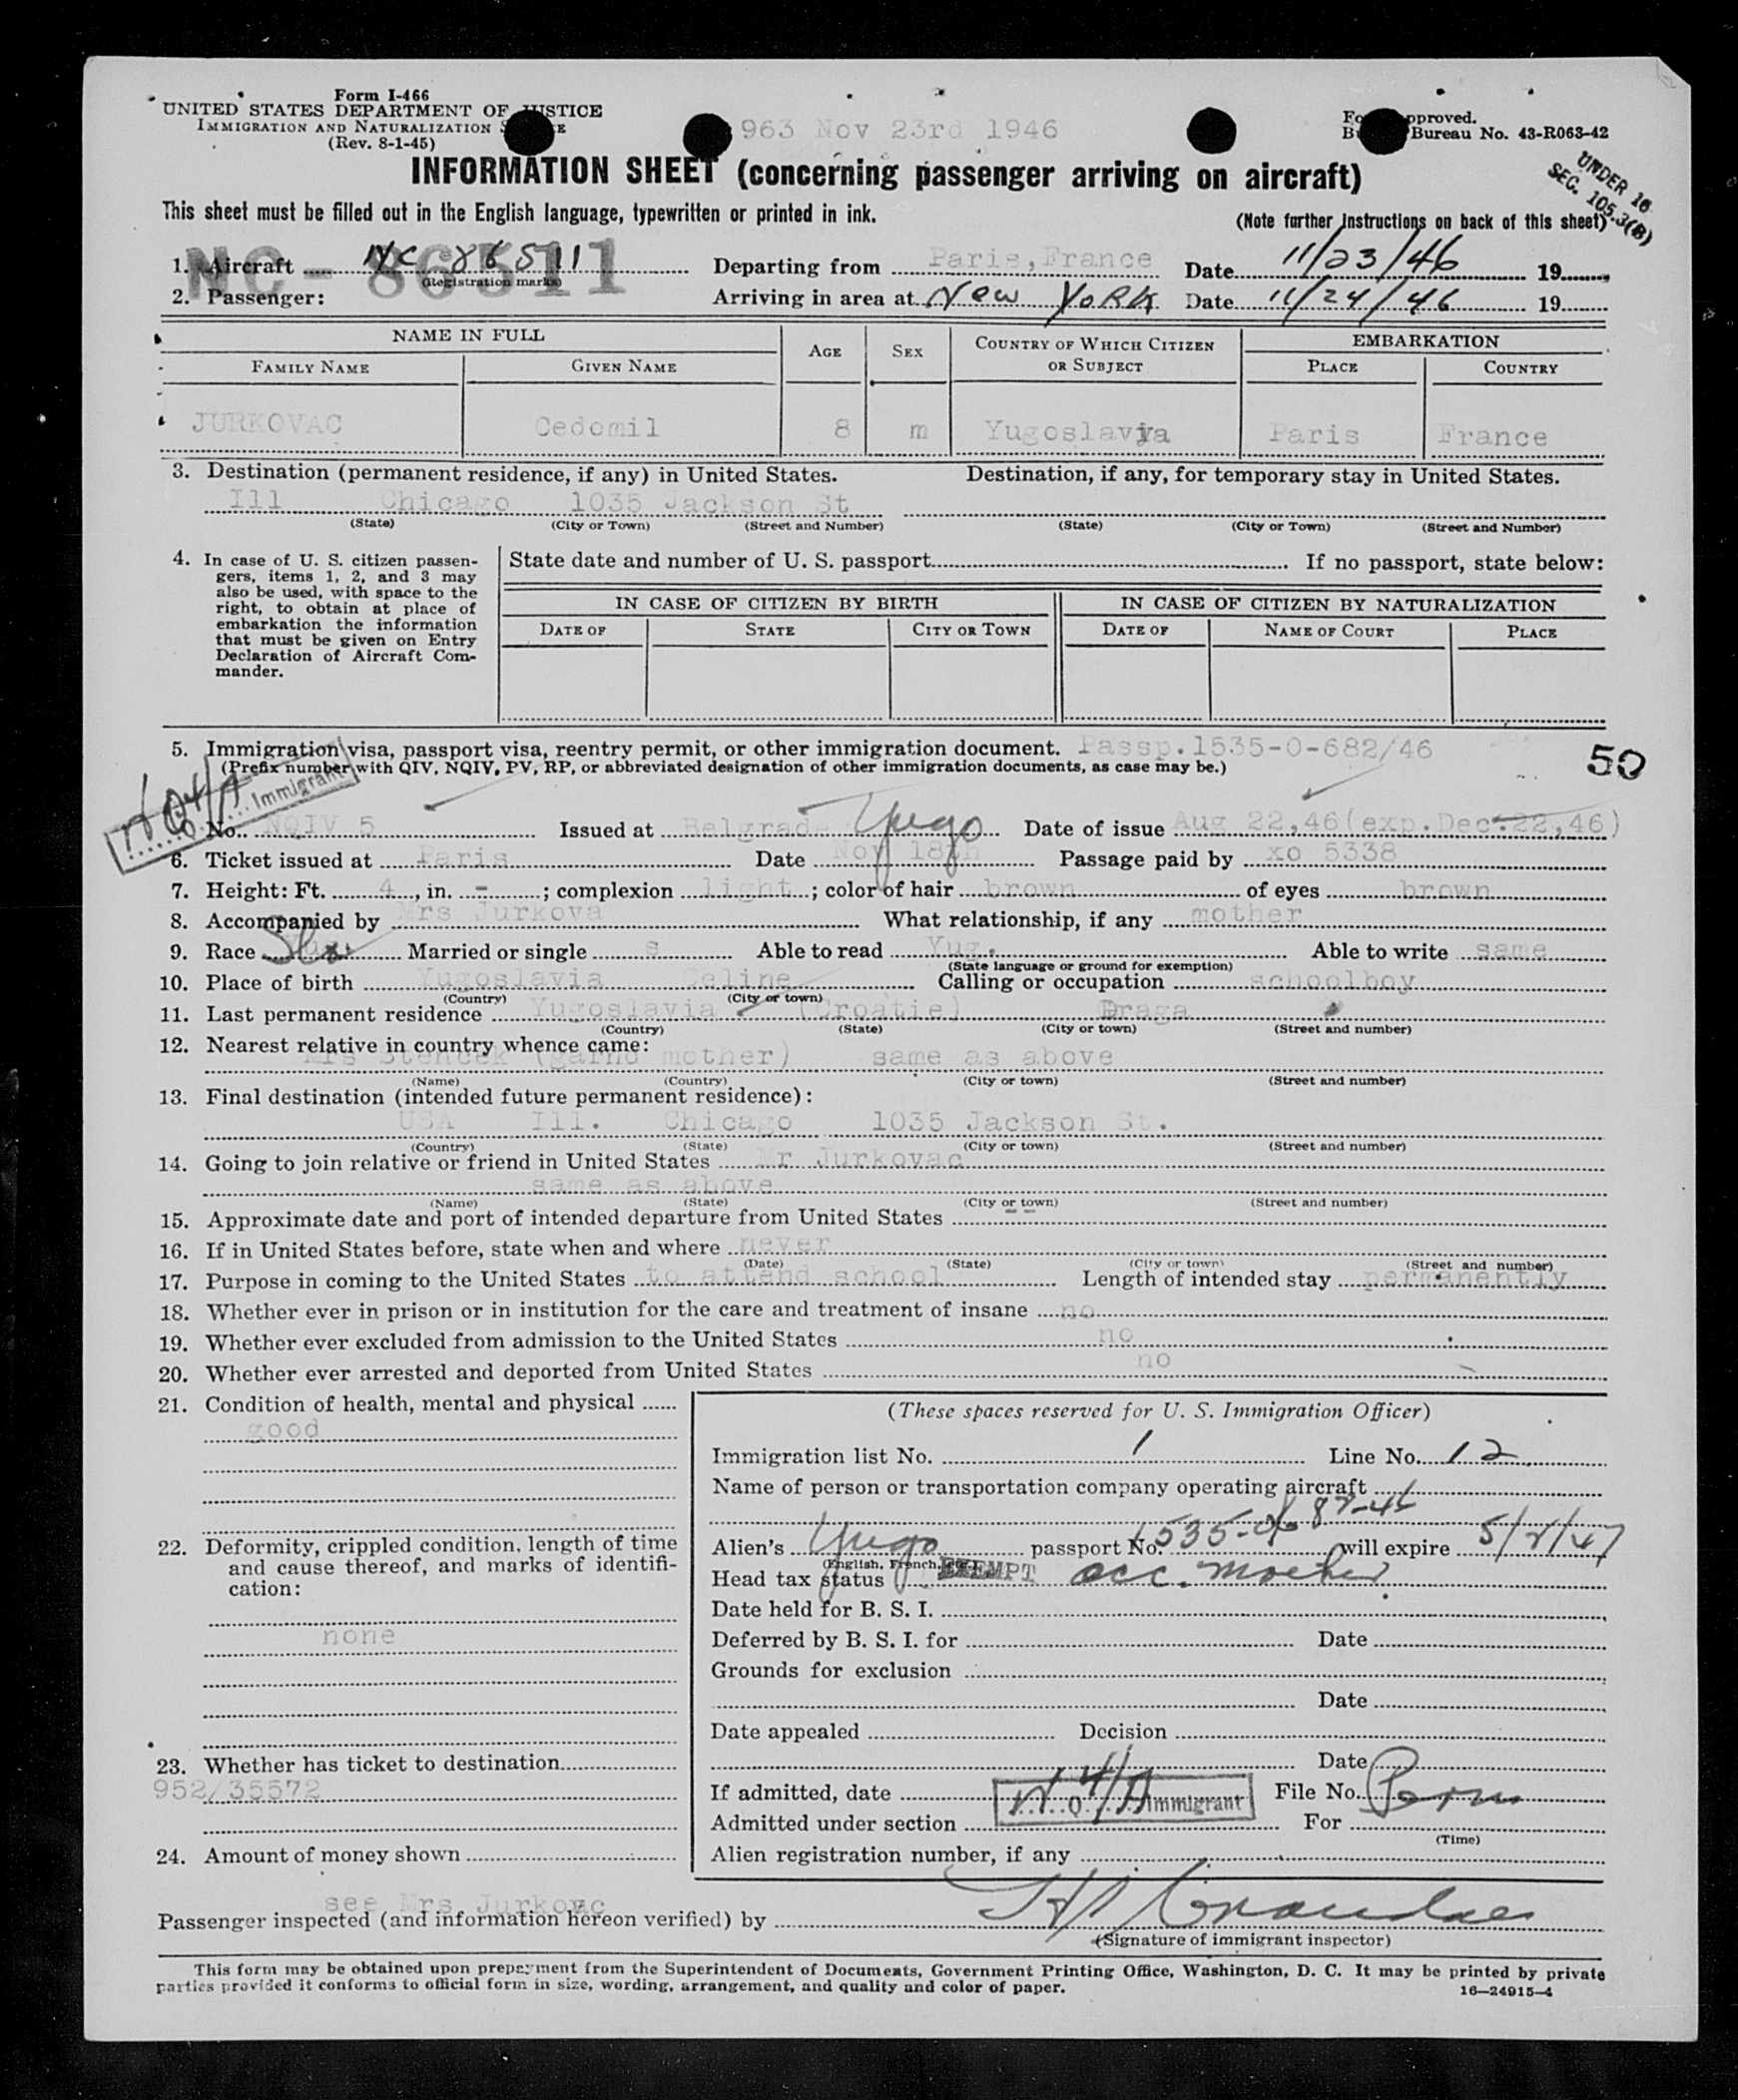 Form I-466
UNITED STATES DEPARTMENT OF JUSTICE
IMMIGRATION AND NATURALIZATION
(Rev. 8-1-45)
963 Nov 23rd 1946
pproved.
Bureau No. 43-R063-42
UNDER 16
SEC. 105.3(B)
INFORMATION SHEET (concerning passenger arriving on aircraft)
This sheet must be filled out in the English language, typewritten or printed in ink.
(Note further instructions on back of this sheet)
NC-86511
1. Aircraft NC 86511 Departing from Paris, France Date 11/23/46 19
(Registration marks)
2. Passenger: Arriving in area at New York Date 11/24/46 19
NAME IN FULL AGE SEX COUNTRY OF WHICH CITIZEN OR SUBJECT EMBARKATION
FAMILY NAME GIVEN NAME PLACE COUNTRY
JURKOVAC Cedomil 8 m Yugoslavia Paris France
3. Destination (permanent residence, if any) in United States. Destination, if any, for temporary stay in United States.
Ill Chicago 1035 Jackson St
(State) (City or Town) (Street and Number) (State) (City or Town) (Street and Number)
4. In case of U. S. citizen passen-
gers, items 1, 2, and 3 may
also be used, with space to the
right, to obtain at place of
embarkation the information
that must be given on Entry
Declaration of Aircraft Com-
mander.
State date and number of U. S. passport If no passport, state below:
IN CASE OF CITIZEN BY BIRTH IN CASE OF CITIZEN BY NATURALIZATION
DATE OF STATE CITY OR TOWN DATE OF NAME OF COURT PLACE
5. Immigration visa, passport visa, reentry permit, or other immigration document. Passp. 1535-0-682/46
(Prefix number with QIV, NQIV, PV, RP, or abbreviated designation of other immigration documents, as case may be.)
50
N Q 4/A Immigrant
No. NQIV 5 Issued at Belgrade Yugo Date of issue Aug 22,46(exp.Dec.22,46)
6. Ticket issued at Paris Date Nov 18th Passage paid by xo 5338
7. Height: Ft. 4, in. -; complexion light; color of hair brown of eyes brown
8. Accompanied by Mrs Jurkova What relationship, if any mother
9. Race Married or single s Able to read Yug. Able to write same
(State language or ground for exemption)
10. Place of birth Yugoslavia Celine Calling or occupation schoolboy
(Country) (City or town)
11. Last permanent residence Yugoslavia (Croatie) Draga
(Country) (State) (City or town) (Street and number)
12. Nearest relative in country whence came:
Mrs Stencek (garnd mother) same as above
(Name) (Country) (City or town) (Street and number)
13. Final destination (intended future permanent residence):
USA Ill. Chicago 1035 Jackson St.
(Country) (State) (City or town) (Street and number)
14. Going to join relative or friend in United States Mr Jurkovac
same as above
(Name) (State) (City or town) (Street and number)
15. Approximate date and port of intended departure from United States --
16. If in United States before, state when and where never
(Date) (State) (City or town) (Street and number)
17. Purpose in coming to the United States to attend school Length of intended stay permanently
18. Whether ever in prison or in institution for the care and treatment of insane no
19. Whether ever excluded from admission to the United States no
20. Whether ever arrested and deported from United States no
21. Condition of health, mental and physical
good
22. Deformity, crippled condition, length of time
and cause thereof, and marks of identifi-
cation:
none
23. Whether has ticket to destination
952/35572
24. Amount of money shown
see Mrs Jurkovac
(These spaces reserved for U. S. Immigration Officer)
Immigration list No. 1 Line No. 12
Name of person or transportation company operating aircraft
Alien's Yugo passport No. will expire 5/2/47
(English, French, etc.)
Head tax status EXEMPT acc. mother
Date held for B. S. I.
Deferred by B. S. I. for Date
Grounds for exclusion
Date
Date appealed Decision
Date
If admitted, date N Q 4/A Immigrant File No. Perm
Admitted under section For
(Time)
Alien registration number, if any
Passenger inspected (and information hereon verified) by
(Signature of immigrant inspector)
This form may be obtained upon prepayment from the Superintendent of Documents, Government Printing Office, Washington, D. C. It may be printed by private
parties provided it conforms to official form in size, wording, arrangement, and quality and color of paper.
16—24915-4